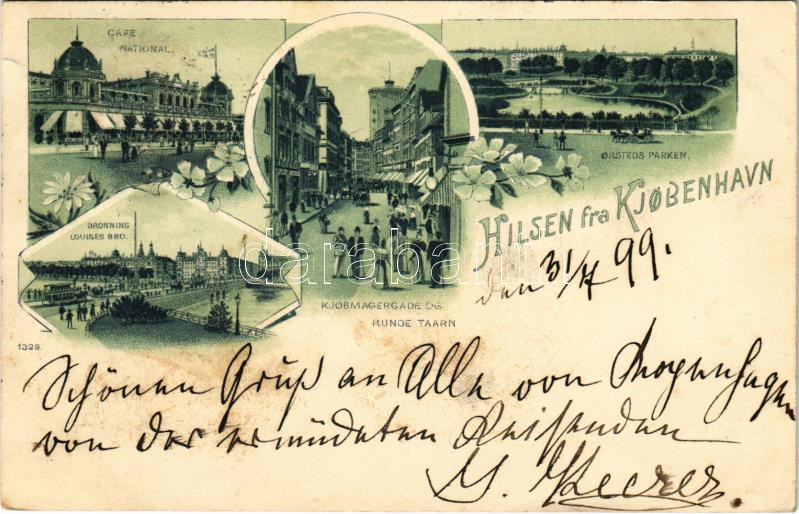 CAFE
NATIONAL.
ØRSTEDS PARKEN.
HILSEN fra KJØBENHAVN
den 31/7 99.
DRONNING
LOUISES BRO.
KJØBMAGERGADE OG
RUNDE TAARN
1329.
darabanth.com
Schönen Gruß an Alle von
von der ermüdeten Reisenden